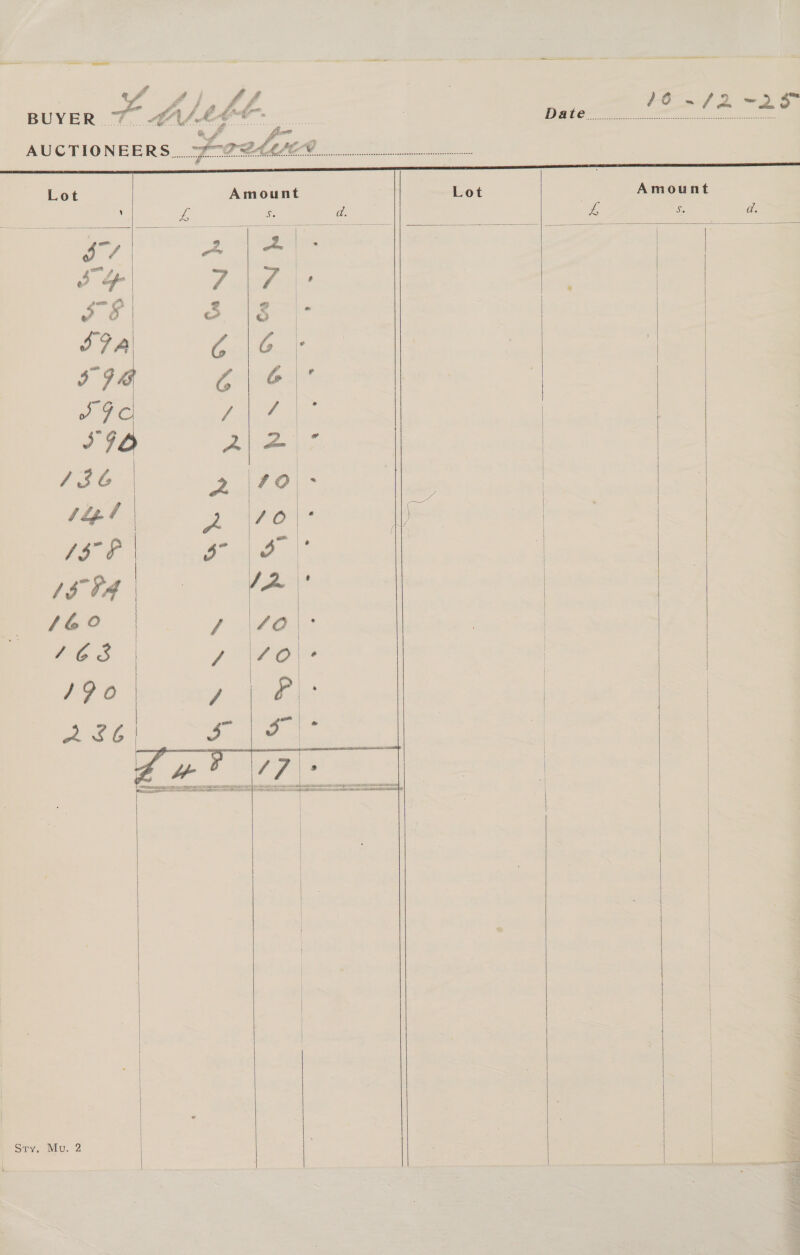 BUYER F Webb. Date 10-12-25
AUCTIONEERS
Lot Amount Lot Amount
£ s. d. £ s. d.
51 2 2 -
54 7 7 -
58 3 3 -
59A 6 6 -
59B 6 6 -
59C 1 1 -
59D 2 2 -
136 2 10 -
141 2 10 -
158 5 5 -
158A 12 -
160 1 10 -
163 1 10 -
190 1 8 -
236 5 5 -
£48 17 -
Sty. Mu. 2